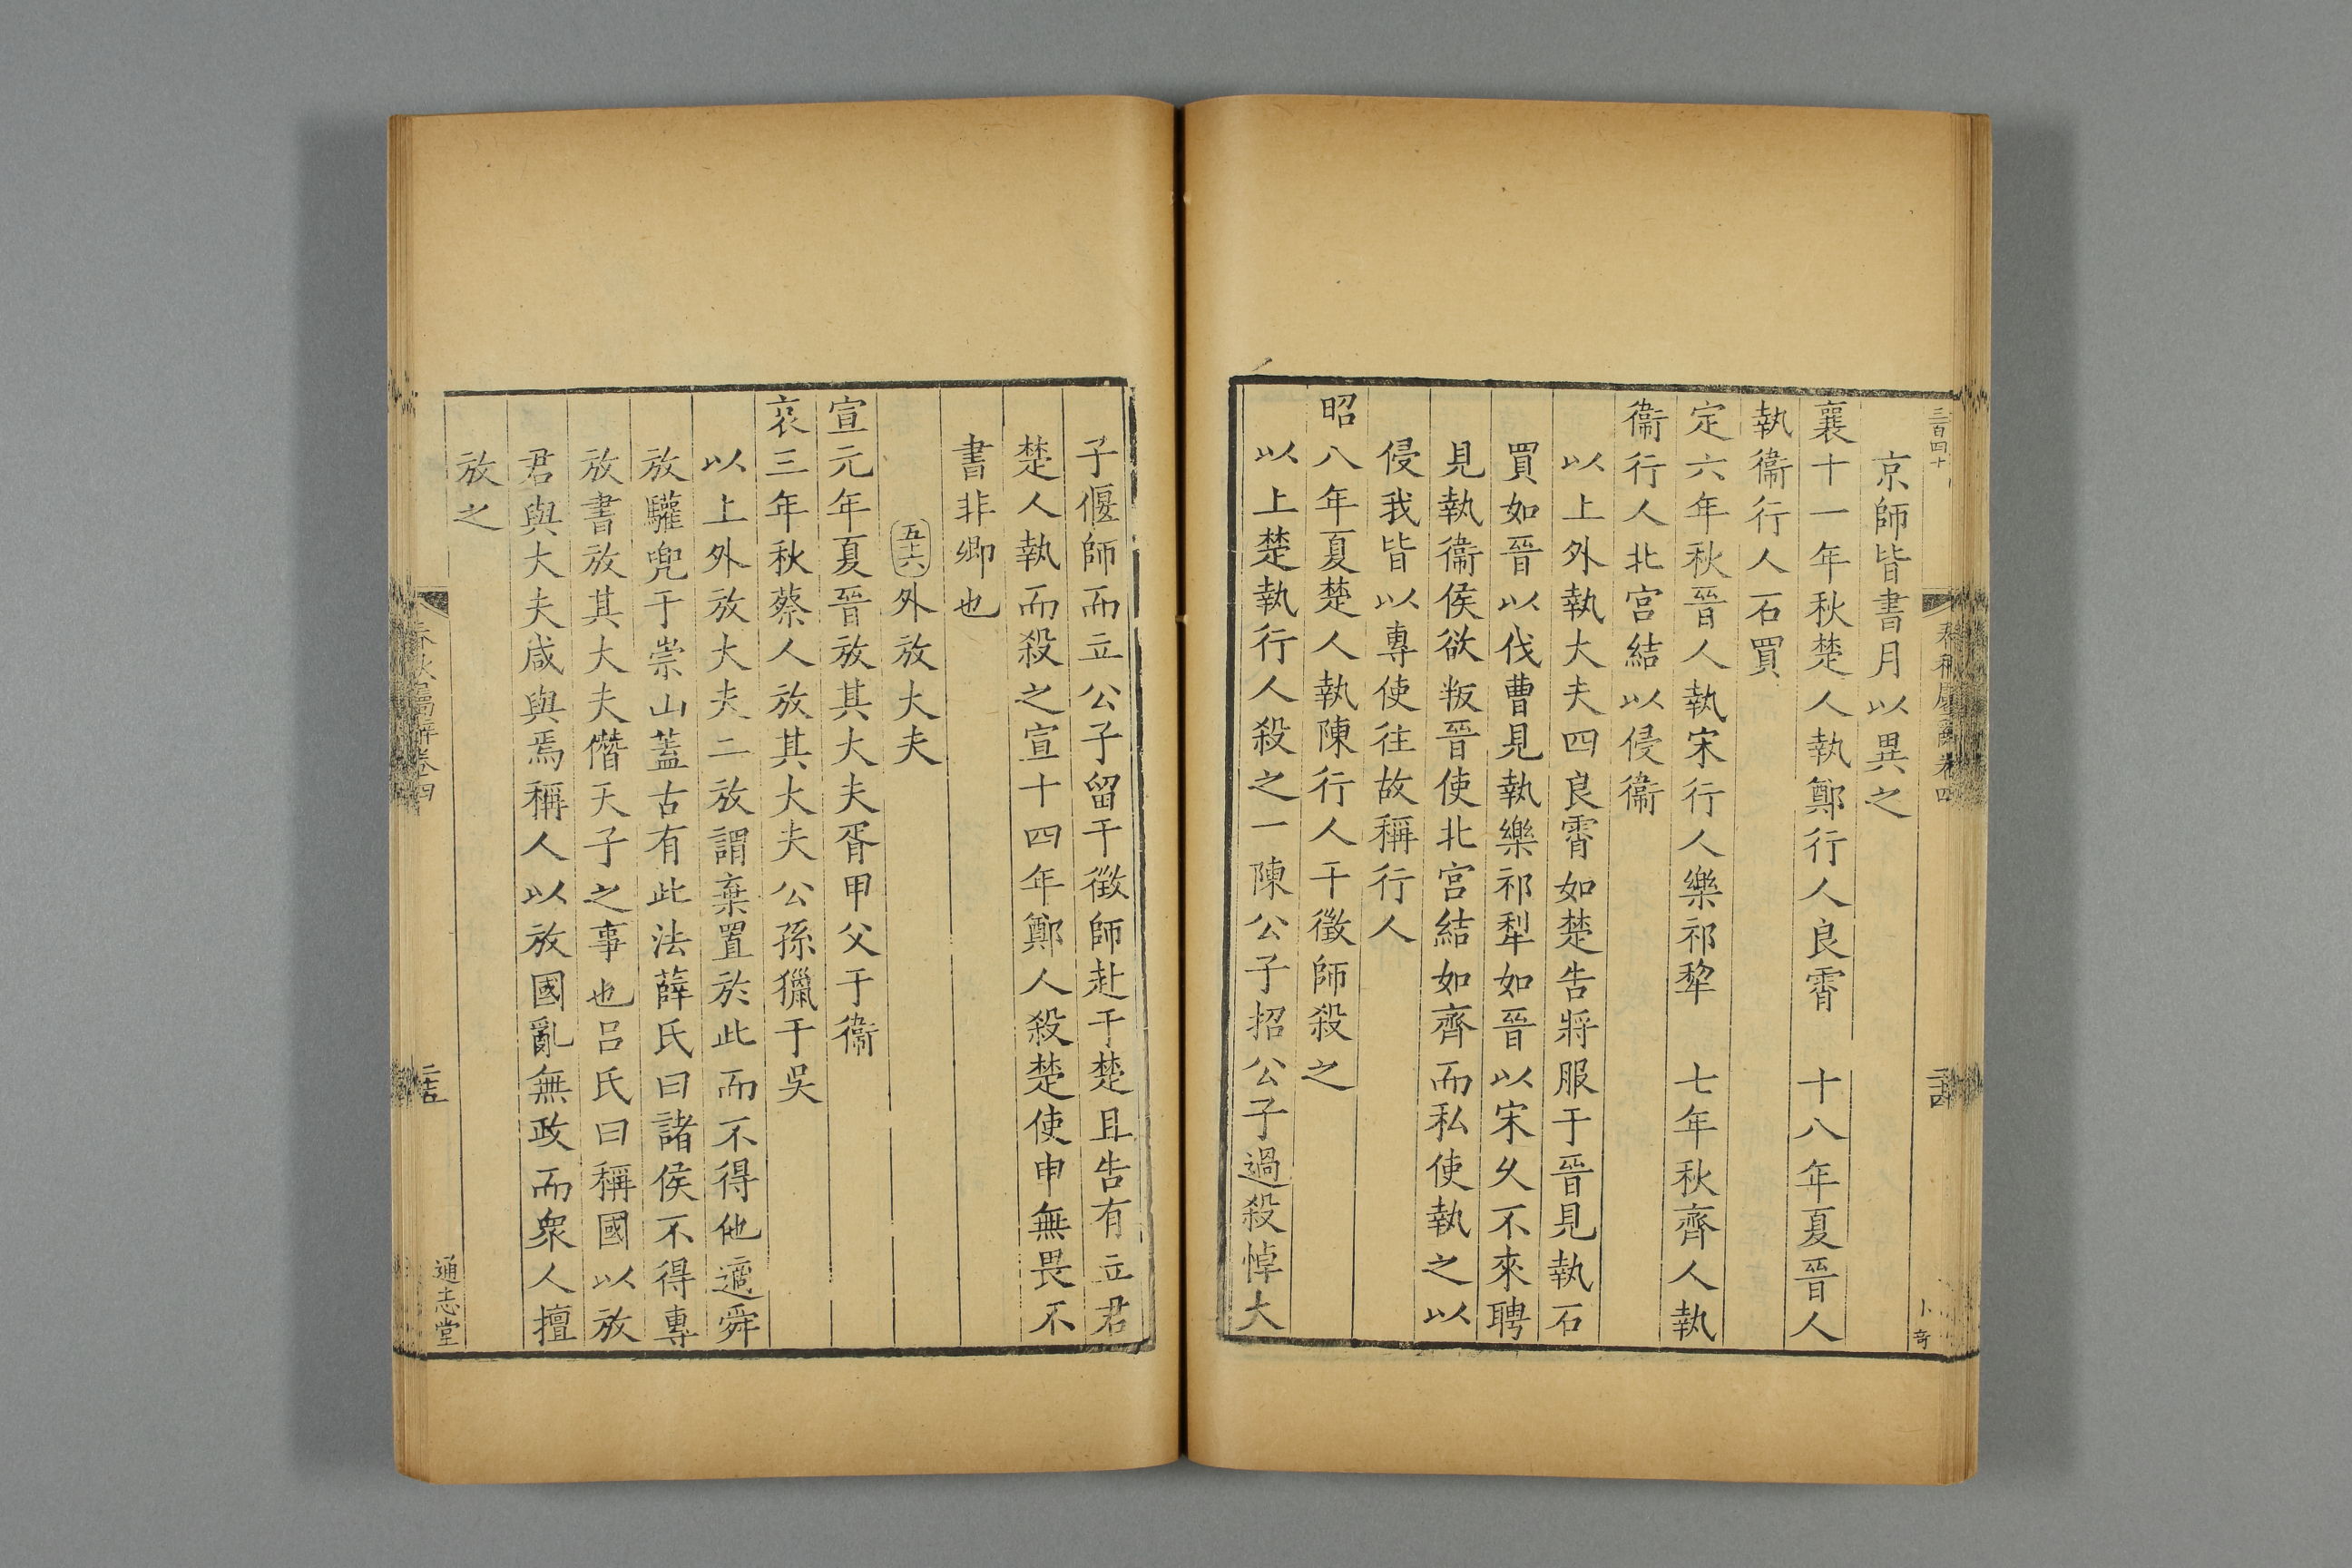 三百四十
京師皆書月以異之
襄十一年秋楚人執鄭行人良霄　十八年夏晉人
執衞行人石買
定六年秋晉人執宋行人樂祁犂　七年秋齊人執
衞行人北宮結以侵衞
以上外執大夫四良霄如楚告將服于晉見執石
買如晉以伐曹見執樂祁犁如晉以宋久不來聘
見執衞侯欲叛晉使北宮結如齊而私使執之以
侵我皆以專使往故稱行人
昭八年夏楚人執陳行人干徵師殺之
以上楚執行人殺之一陳公子招公子過殺悼大
子偃師而立公子留干徵師赴于楚且告有立君
楚人執而殺之宣十四年鄭人殺楚使申無畏不
書非卿也
五十六外放大夫
宣元年夏晉放其大夫胥甲父于衞
哀三年秋蔡人放其大夫公孫獵于吳
以上外放大夫二放謂棄置於此而不得他適舜
放驩兜于崇山蓋古有此法薛氏曰諸侯不得專
放書放其大夫僭天子之事也呂氏曰稱國以放
君與大夫咸與焉稱人以放國亂無政而衆人擅
放之
春秋屬辭卷四
二十五
通志堂